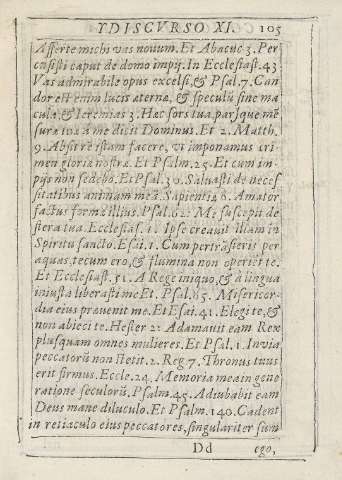 YDISCVRSO XI. 105
Afferte michi vas nouum. Et Abacuc 3. Per
cusisti caput de domo impij. In Ecclesiast. 43
Vas admirabile opus excelsi, & Psal. 7. Can
dor est enim lucis æternæ, & speculũ sine ma
cula, & Ieremias 3. Hæc sors tua, parsque mẽ
suræ tuæ a me dicit Dominus. Et 2. Matth.
9. Absit re istam facere, vt imponamus cri
men gloriæ nostræ. Et Psalm. 25. Et cum im
pijs non sedebo. Et Psal. 30. Saluasti de necess
sitatibus animam meã. Sapienti 8. Amator
factus formæ illius. Psal. 62. Me suscepit de
xtera tua. Ecclesias. 1. Ipse creauit illam in
Spiritu sancto. Esai. 1. Cum pertrãsieris per
aquas, tecum ero, & flumina non operiẽt te.
Et Ecclesiast. 51. A Rege iniquo, & à lingua
iniusta liberasti me Et. Psal. 65. Misericor-
dia eius præuenit me. Et Esai. 41. Elegi te, &
non abieci te. Hester 2: Adamauit eam Rex
plusquam omnes mulieres. Et Psal. 1. In via
peccatorũ non stetit. 2. Reg 7. Thronus tuus
erit firmus. Eccle. 24. Memoria mea in gene
ratione seculorũ. Psalm. 45. Adiubabit eam
Deus mane diluculo. Et Psalm. 140. Cadent
in retiaculo eius peccatores, singulariter sum
Dd ego,